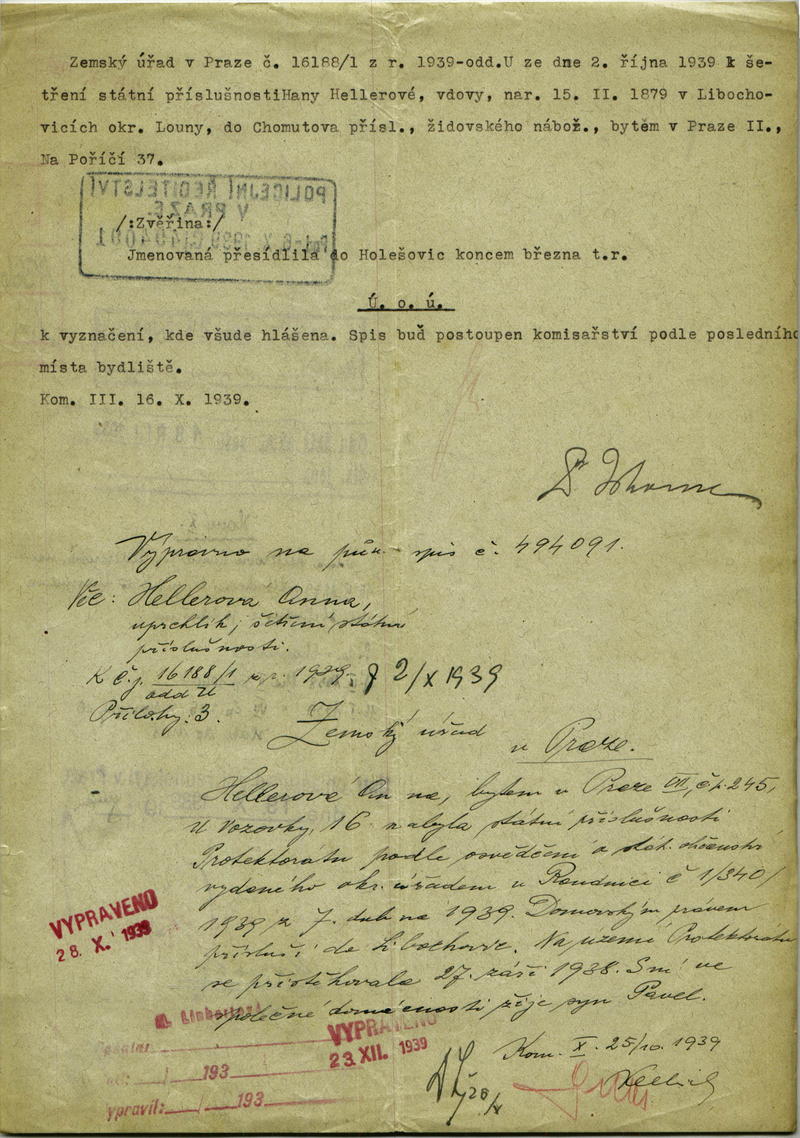 Zemský úřad v Praze č. 16188/1 z r. 1939-odd.U ze dne 2. října 1939 k še-
tření státní příslušnostiHany Hellerové, vdovy, nar. 15. II. 1879 v Libocho-
vicích okr. Louny, do Chomutova přísl., židovského nábož., bytem v Praze II.,
Na Poříčí 37.
POLICEJNÍ ŘEDITELSTVÍ
V PRAZE
/:Zvěřina:/
Jmenovaná přesídlila do Holešovic koncem března t.r.
Ú. o. ú.
k vyznačení, kde všude hlášena. Spis buď postoupen komisařství podle posledního
místa bydliště.
Kom. III. 16. X. 1939.
Vypravino na pův. spis č. 494091.
Věc: Hellerová Anna,
uprchlík; šetření státní
příslušnosti.
K č.j. 16188/1 z r. 1939. z 2/X 1939
odd U
Přílohy: 3.
Zemský úřad
v Praze.
Hellerové Anna, bytem v Praze VII, č.p. 245,
U Vozovky 16 nabyla státní příslušnosti
Protektorátu podle osvědčení o stát. občanství
vydaného okr. úřadem v Roudnici č 1/840/
1939 z 7. dubna 1939. Domovským právem
přísluší do Libochovic. Na území Protektorátu
se přistěhovala 27. září 1938. S ní ve
společné domácnosti žije syn Pavel.
VYPRAVENO
28. X. 1939
VYPRAVENO
23. XII. 1939
193
vypravil: / 193
Kom. X. 25/10. 1939